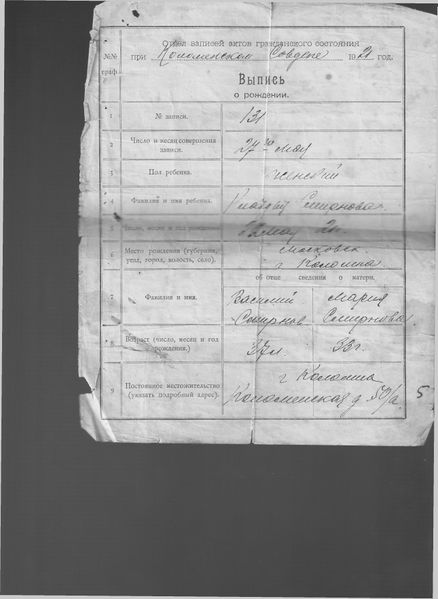 Отдел записей актов гражданского состояния
№№ граф. при Коломенском Совдепе 1921 год.
Выпись
о рождении.
1 № записи. 131
2 Число и месяц совершения записи. 27го мая
3 Пол ребенка. женский
4 Фамилия и имя ребенка. Смирнова
5 Число, месяц и год рождения мая 21г.
6 Место рождения (губерния, уезд, город, волость, село). Московск.
г Коломна
об отце сведения о матери.
7 Фамилия и имя. Василий Мария
Смирнов Смирнова
8 Возраст (число, месяц и год рождения). 37л. 33г.
9 Постоянное местожительство (указать подробный адрес). г Коломна
Коломенская д 50/а 5